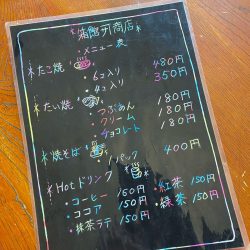 商店
・メニュー表
＊たこ焼
・6コ入り 480円
・4コ入り 350円
＊たい焼
・つぶあん 180円
・クリーム 180円
・チョコレート 180円
＊焼そば
・1パック 400円
＊Hotドリンク
・コーヒー 150円 ・紅茶 150円
・ココア 150円 ・緑茶 150円
・抹茶ラテ 150円